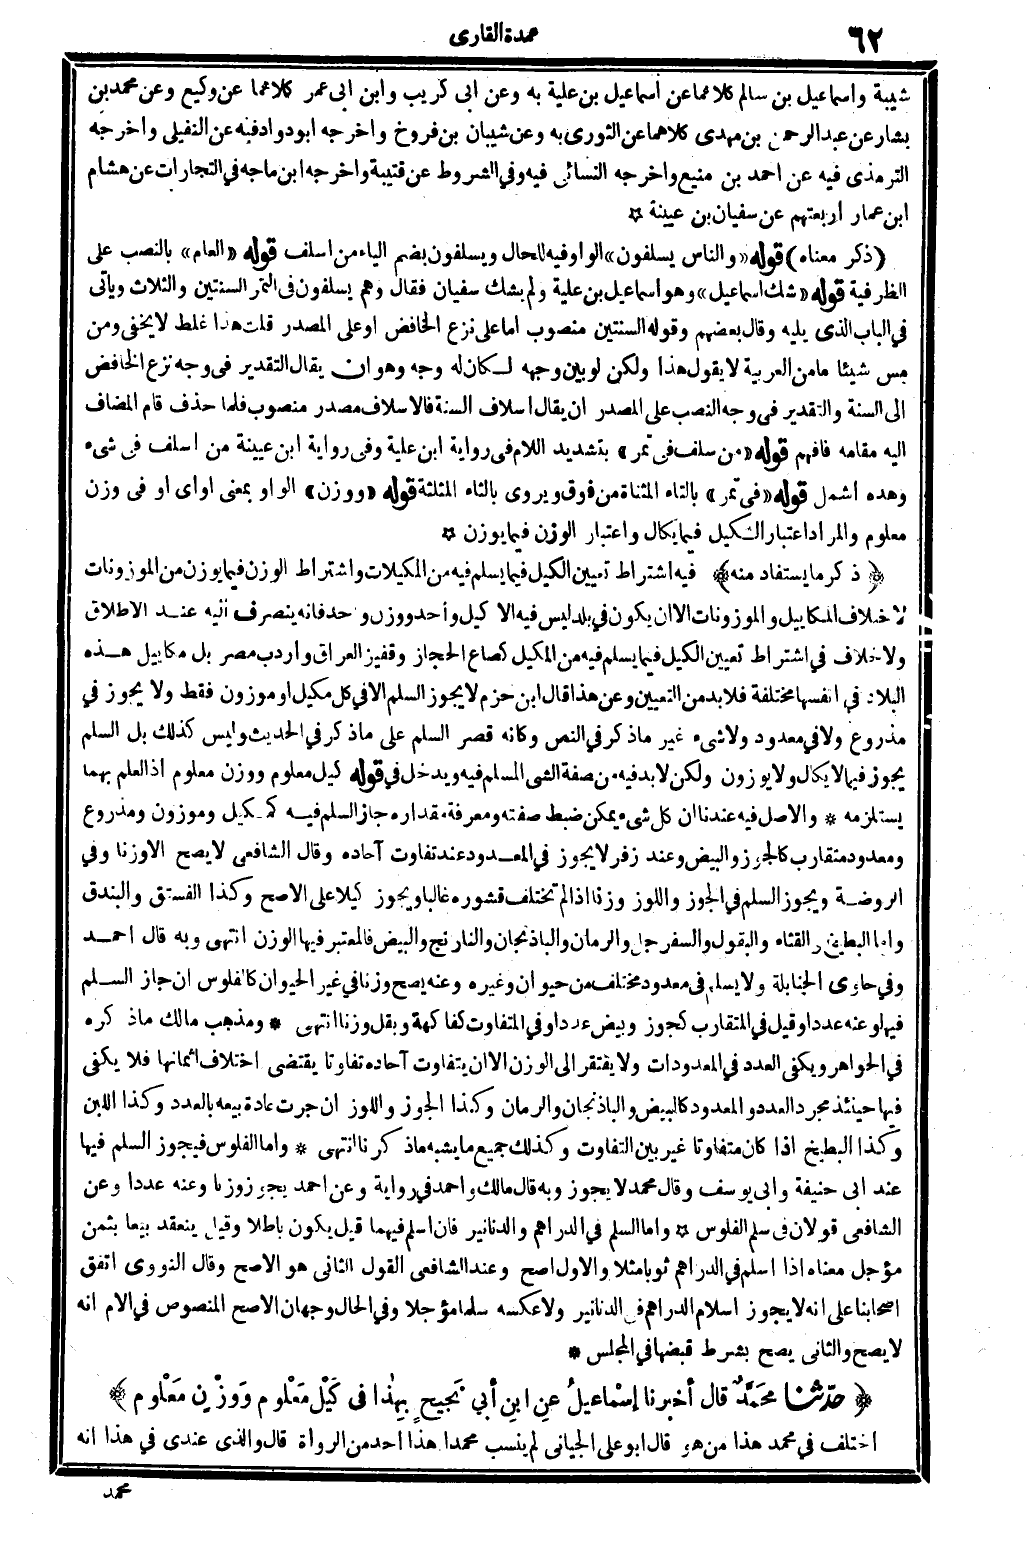 ٦٢
عمدة القارى
شيبة واسماعيل بن سالم كلاهما عن اسماعيل بن علية به وعن ابى كريب وابن ابى عمر كلاهما عن وكيع وعن محمد بن
بشار عن عبد الرحمن بن مهدى كلاهما عن الثورى به وعن شيبان بن فروخ واخرجه ابو داود فيه عن النفيلى واخرجه
الترمذى فيه عن احمد بن منيع واخرجه النسائى فيه وفي الشروط عن قتيبة واخرجه ابن ماجه في التجارات عن هشام
ابن عمار اربعتهم عن سفيان بن عيينة ☆
(ذكر معناه) قوله «والناس يسلفون» الواو فيه للحال ويسلفون بضم الياء من اسلف قوله «العام» بالنصب على
الظرفية قوله «شك اسماعيل» وهو اسماعيل بن علية ولم يشك سفيان فقال وهم يسلفون فى التمر السنتين والثلاث ويأتى
في الباب الذى يليه وقال بعضهم وقوله السنتين منصوب اما على نزع الخافض او على المصدر قلت هذا غلط لا يخفى ومن
مس شيئا ما من العربية لا يقول هذا ولكن لو بين وجهه لكان له وجه وهو ان يقال التقدير فى وجه نزع الخافض
الى السنة والتقدير فى وجه النصب على المصدر ان يقال اسلاف السنة فالاسلاف مصدر منصوب فلما حذف قام المضاف
اليه مقامه فافهم قوله «من سلف فى تمر» بتشديد اللام فى رواية ابن علية وفى رواية ابن عيينة من اسلف فى شىء
وهذه اشمل قوله «فى تمر» بالتاء المثناة من فوق ويروى بالثاء المثلثة قوله «ووزن» الواو بمعنى او اى او فى وزن
معلوم والمراد اعتبار الكيل فيما يكال واعتبار الوزن فيما يوزن ☆
﴿ ذكر ما يستفاد منه ﴾ فيه اشتراط تعيين الكيل فيما يسلم فيه من المكيلات واشتراط الوزن فيما يوزن من الموزونات
لاختلاف المكاييل والموزونات الا ان يكون فى بلد ليس فيه الا كيل واحد ووزن واحد فانه ينصرف اليه عند الاطلاق
ولا خلاف في اشتراط تعيين الكيل فيما يسلم فيه من المكيل كصاع الحجاز وقفيز العراق واردب مصر بل مكاييل هذه
البلاد في انفسها مختلفة فلا بد من التعيين وعن هذا قال ابن حزم لا يجوز السلم الا في كل مكيل او موزون فقط ولا يجوز في
مذروع ولا في معدود ولا شىء غير ما ذكر في النص وكانه قصر السلم على ما ذكر في الحديث وليس كذلك بل السلم
يجوز فيما لا يكال ولا يوزون ولكن لا بد فيه من صفة الشى المسلم فيه ويدخل في قوله كيل معلوم ووزن معلوم اذ العلم بهما
يستلزمه * والاصل فيه عندنا ان كل شىء يمكن ضبط صفته ومعرفة مقداره جاز السلم فيه كمكيل وموزون ومذروع
ومعدود متقارب كالجوز والبيض وعند زفر لا يجوز في المعدود عند تفاوت آحاده وقال الشافعى لا يصح الا وزنا وفي
الروضة ويجوز السلم في الجوز واللوز وزنا اذا لم تختلف قشوره غالبا ويجوز كيلا على الاصح وكذا الفستق والبندق
واما البطيخ والقثاء والبقول والسفرجل والرمان والباذنجان والنارنج والبيض فالمعتبر فيها الوزن انتهى وبه قال احمد
وفي حاوى الحنابلة ولا يسلم فى معدود مختلف من حيوان وغيره وعنه يصح وزنا في غير الحيوان كالفلوس ان جاز السلم
فيها وعنه عددا وقيل في المتقارب كجوز وبيض عددا وفي المتفاوت كفاكهة وبقل وزنا انتهى * ومذهب مالك ما ذكره
في الجواهر ويكفى العدد في المعدودات ولا يفتقر الى الوزن الا ان يتفاوت آحاده تفاوتا يقتضى اختلاف اثمانها فلا يكفى
فيها حينئذ مجرد العدد والمعدود كالبيض والباذنجان والرمان وكذا الجوز واللوز ان جرت عادة بيعه بالعدد وكذا اللبن
وكذا البطيخ اذا كان متفاوتا غير بين التفاوت وكذلك جميع ما يشبه ما ذكرنا انتهى * واما الفلوس فيجوز السلم فيها
عند ابى حنيفة وابى يوسف وقال محمد لا يجوز وبه قال مالك واحمد في رواية وعن احمد يجوز وزنا وعنه عددا وعن
الشافعى قولان فى سلم الفلوس ☆ واما السلم في الدراهم والدنانير فان اسلم فيهما قيل يكون باطلا وقيل ينعقد بيعا بثمن
مؤجل معناه اذا اسلم في الدراهم ثوبا مثلا والاول اصح وعند الشافعى القول الثانى هو الاصح وقال النووى اتفق
اصحابنا على انه لا يجوز اسلام الدراهم فى الدنانير ولا عكسه سلما مؤجلا وفي الحال وجهان الاصح المنصوص في الام انه
لا يصح والثانى يصح بشرط قبضها في المجلس *
﴿ حَدّثنا محَمَّدٌ قال أخبرنا إسْماعيلُ عنِ ابنِ أبي نَجيحٍ بِهذا فى كَيْلٍ مَعْلُومٍ وَوَزْنٍ مَعْلُومٍ ﴾
اختلف في محمد هذا من هو قال ابو على الجيانى لم ينسب محمدا هذا احد من الرواة قال والذى عندى في هذا انه
محمد